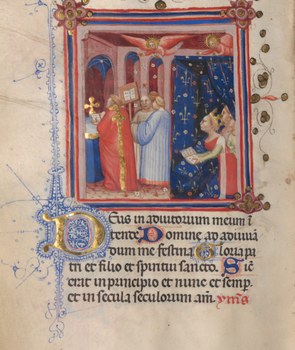 Deus in adiutorium meum i
tende Domine ad adiuuā
dum me festina Gloria pa
tri et filio et spiritui sancto. Sic̄
erat in principio et nunc et semp.
et in secula seculorum am̄. ymn̄s